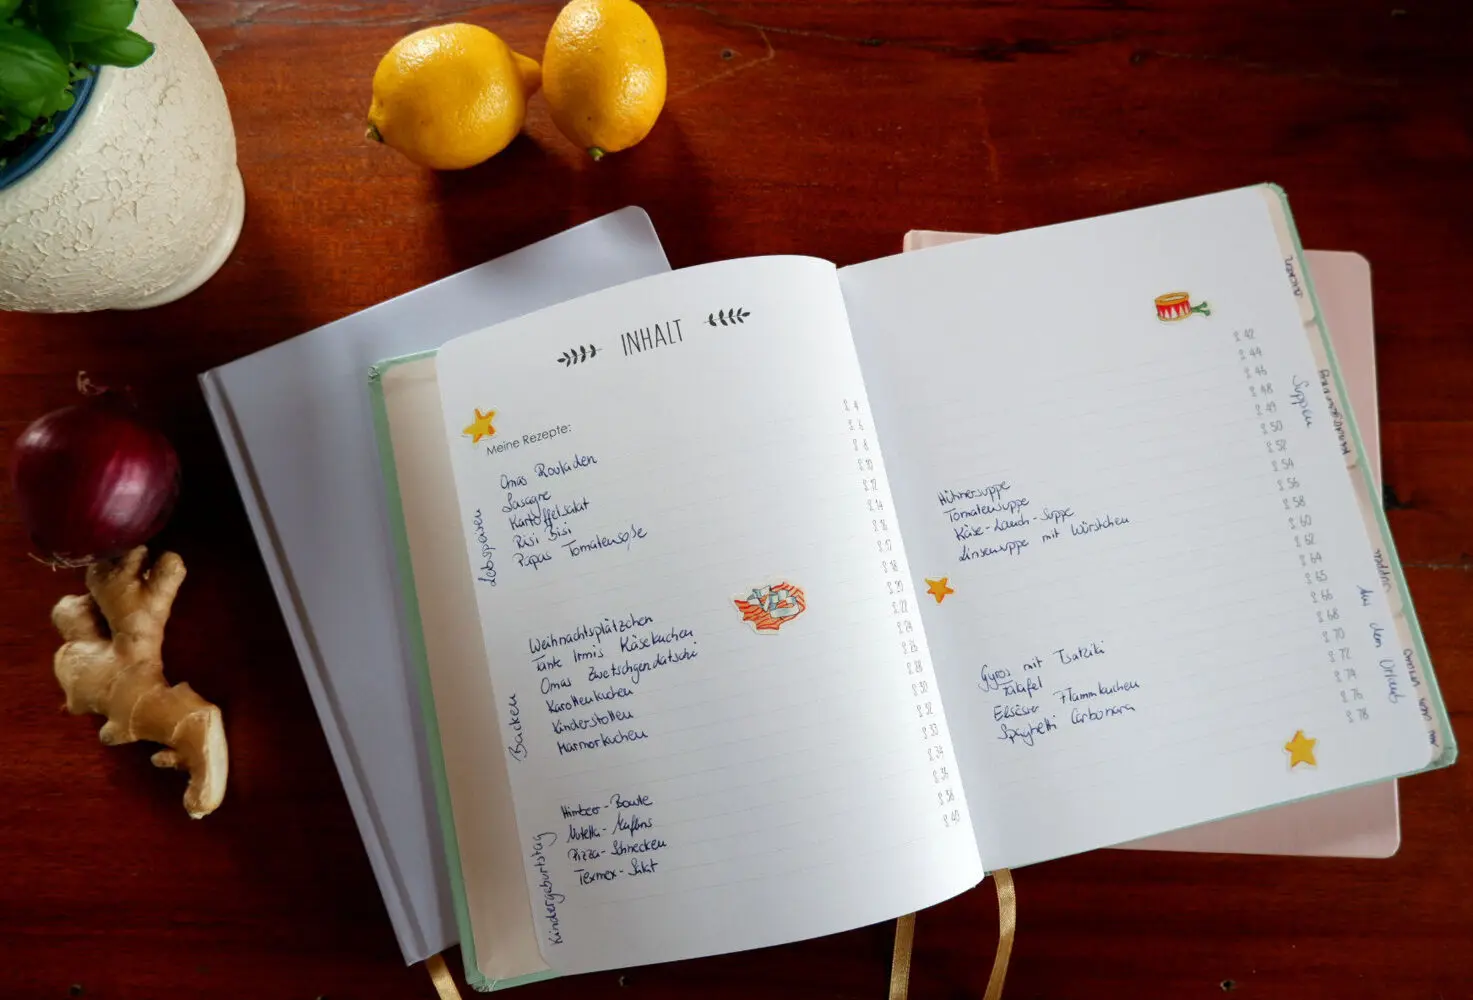 INHALT
Meine Rezepte:
Leibspeisen
Omas Rouladen
Lasagne
Kartoffelsalat
Risi Bisi
Papas Tomatensoße
Backen
Weihnachtsplätzchen
Tante Irmis Käsekuchen
Omas Zwetschgendatschi
Karottenkuchen
Kinderstollen
Marmorkuchen
Kindergeburtstag
Himbeer-Bowle
Nutella-Muffins
Pizza-Schnecken
Texmex-Salat
S. 4
S. 6
S. 8
S. 10
S. 12
S. 14
S. 16
S. 17
S. 18
S. 20
S. 22
S. 24
S. 26
S. 28
S. 30
S. 32
S. 33
S. 34
S. 40
Suppen
Hühnersuppe
Tomatensuppe
Käse-Lauch-Suppe
Linsensuppe mit Würstchen
Aus dem Urlaub
Gyros mit Tsatziki
Falafel
Elsässer Flammkuchen
Spaghetti Carbonara
S. 42
S. 44
S. 46
S. 48
S. 49
S. 50
S. 52
S. 54
S. 56
S. 58
S. 60
S. 62
S. 64
S. 65
S. 66
S. 68
S. 70
S. 72
S. 74
S. 76
S. 78
BACKEN
KINDERGEBURTSTAG
SUPPEN
AUS DEM URLAUB